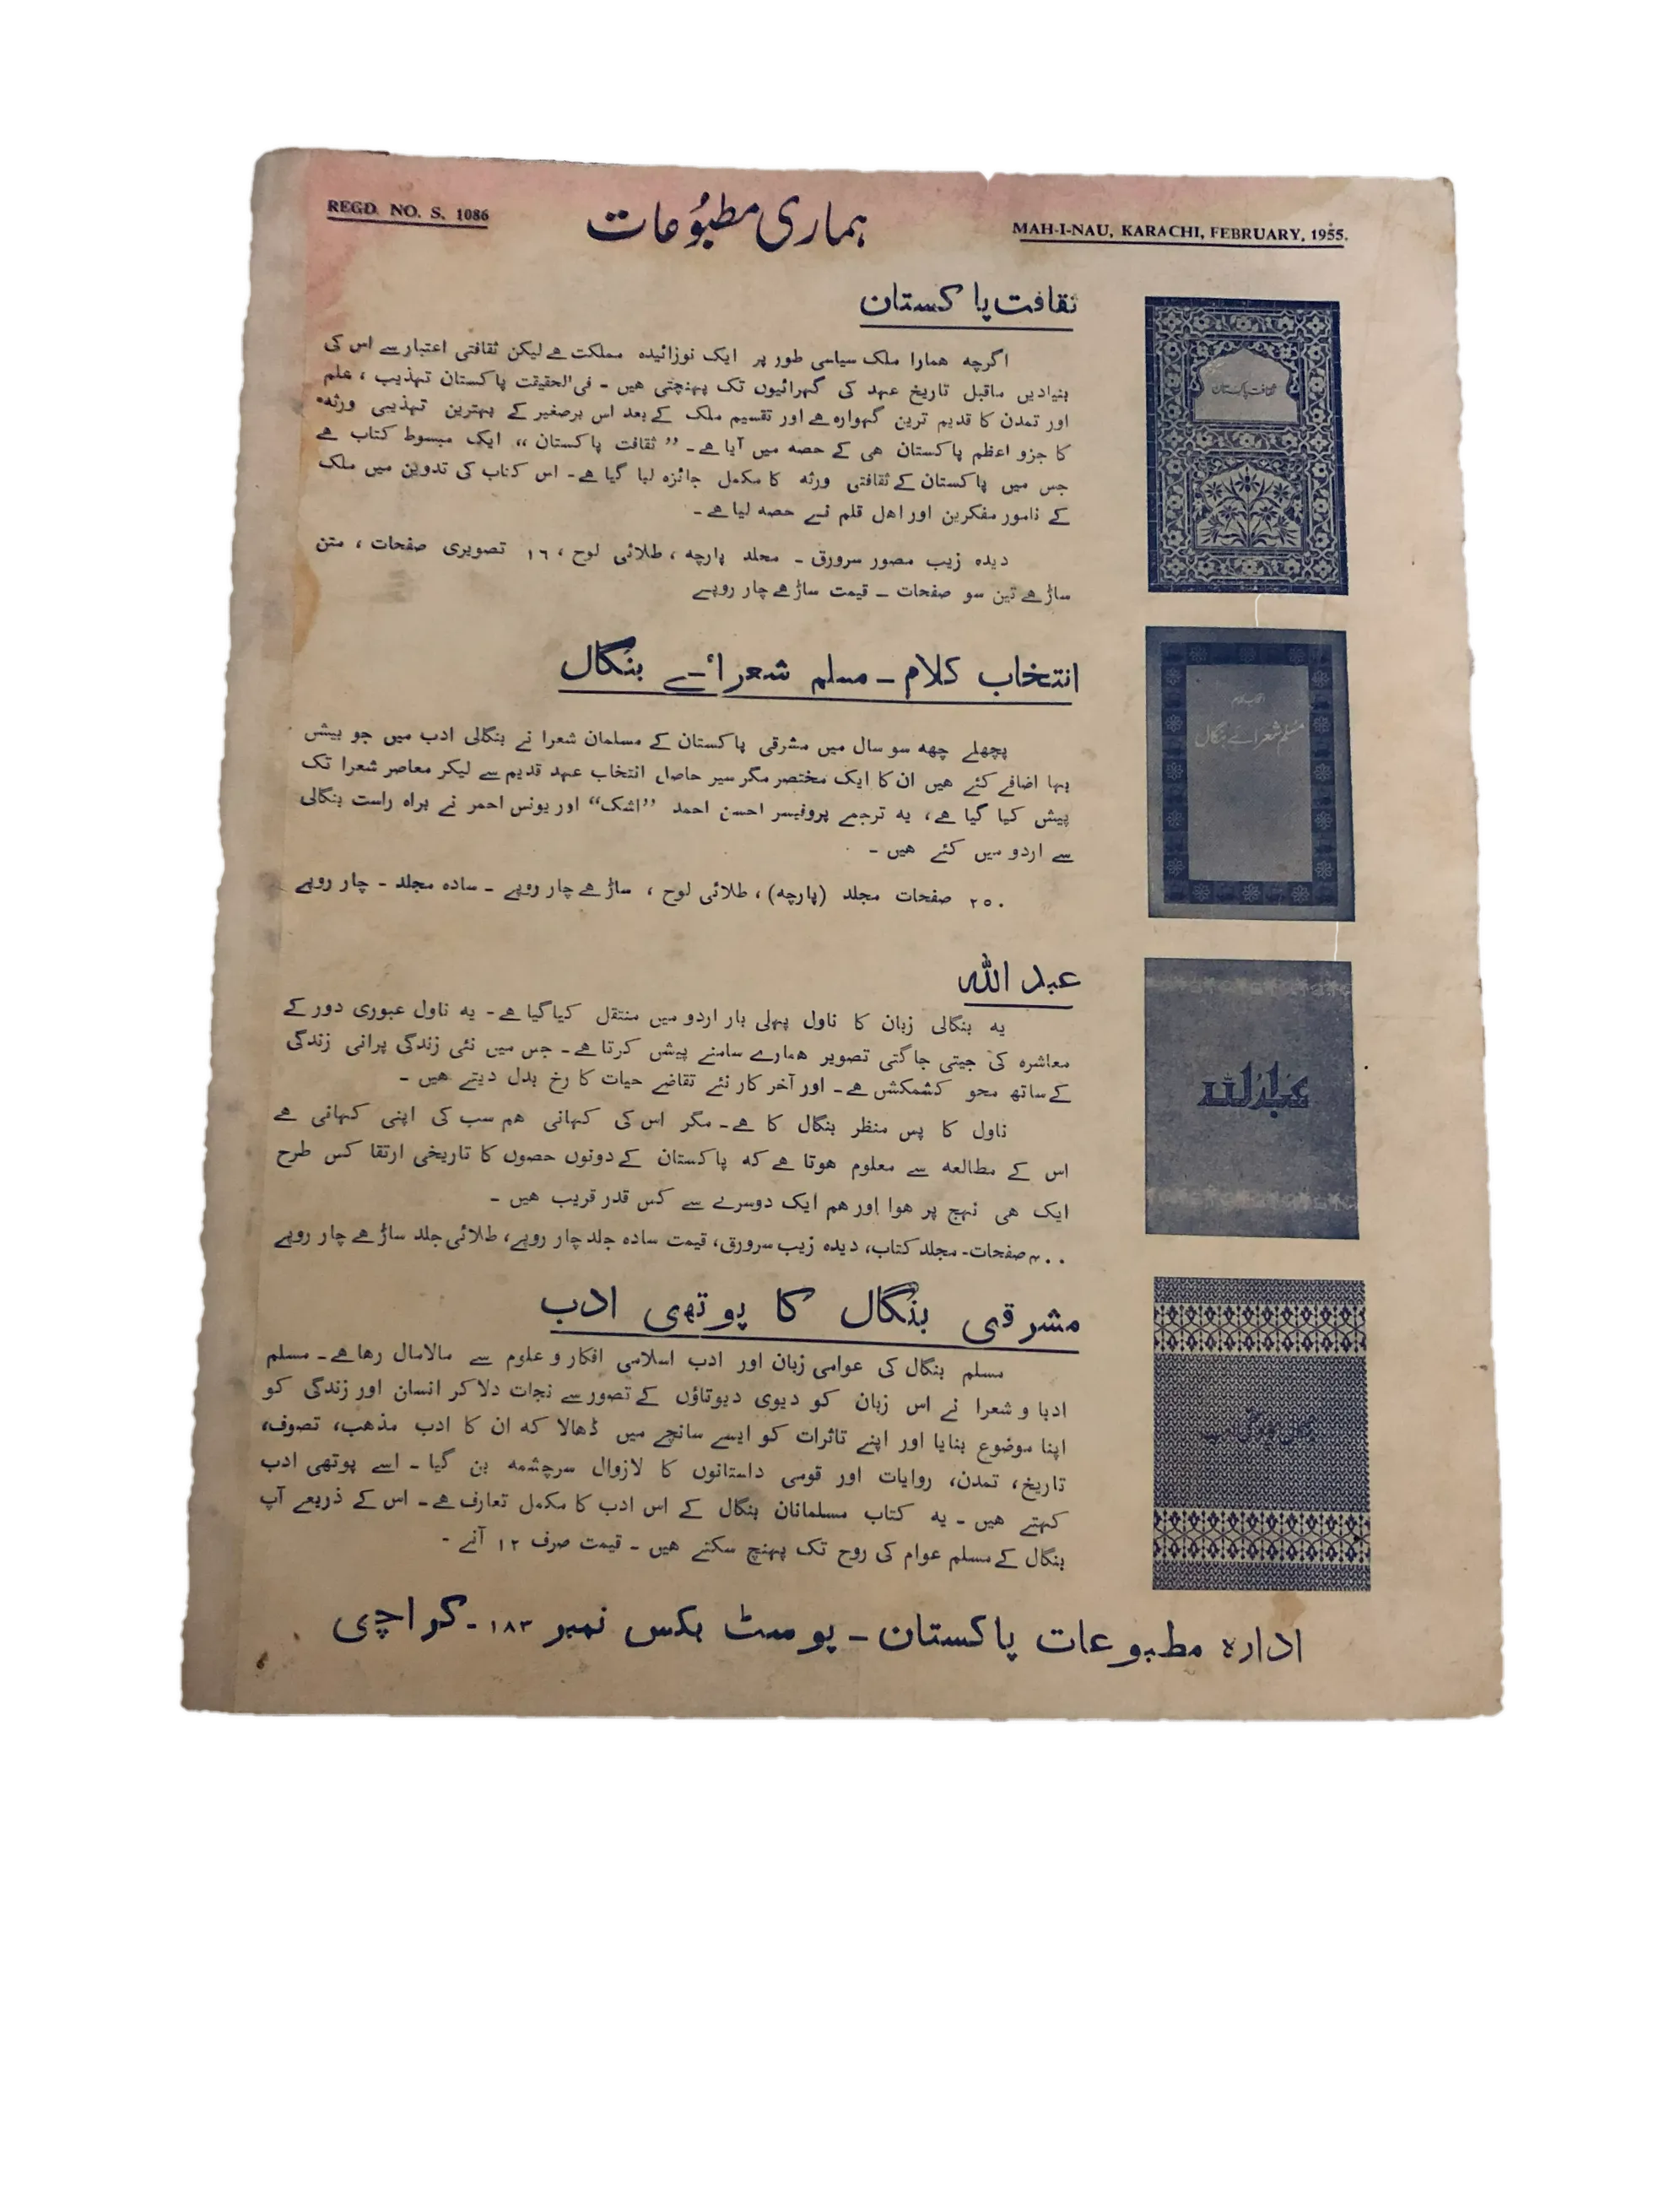 REGD. NO. S. 1086
ہماری مطبُوعات
MAH-I-NAU, KARACHI, FEBRUARY, 1955.
ثقافت پاکستان
اگرچہ ہمارا ملک سیاسی طور پر ایک نوزائیدہ مملکت ہے لیکن ثقافتی اعتبار سے اس کی
بنیادیں ماقبل تاریخ عہد کی گہرائیوں تک پہنچتی ہیں ۔ فی الحقیقت پاکستان تہذیب ، علم
اور تمدن کا قدیم ترین گہوارہ ہے اور تقسیم ملک کے بعد اس برصغیر کے بہترین تہذیبی ورثہ
کا جزو اعظم پاکستان ہی کے حصہ میں آیا ہے۔ ”ثقافت پاکستان“ ایک مبسوط کتاب ہے
جس میں پاکستان کے ثقافتی ورثہ کا مکمل جائزہ لیا گیا ہے۔ اس کتاب کی تدوین میں ملک
کے نامور مفکرین اور اہل قلم نے حصہ لیا ہے ۔
دیدہ زیب مصور سرورق ۔ مجلد پارچہ ، طلائی لوح ، ۱٦ تصویری صفحات ، متن
ساڑھے تین سو صفحات ۔ قیمت ساڑھے چار روپے
ثقافت پاکستان
انتخاب کلام ۔ مسلم شعرائے بنگال
پچھلے چھہ سو سال میں مشرقی پاکستان کے مسلمان شعرا نے بنگالی ادب میں جو بیش
بہا اضافے کئے ہیں ان کا ایک مختصر مگر سیر حاصل انتخاب عہد قدیم سے لیکر معاصر شعرا تک
پیش کیا گیا ہے، یہ ترجمے پروفیسر احسن احمد ”اشک“ اور یونس احمر نے براہ راست بنگالی
سے اردو میں کئے ہیں ۔
۲۵۰ صفحات مجلد (پارچہ) ، طلائی لوح ، ساڑھے چار روپے ۔ سادہ مجلد ۔ چار روپے
انتخاب کلام
مسلم شعرائے بنگال
عبد اللہ
یہ بنگالی زبان کا ناول پہلی بار اردو میں منتقل کیا گیا ہے۔ یہ ناول عبوری دور کے
معاشرہ کی جیتی جاگتی تصویر ہمارے سامنے پیش کرتا ہے۔ جس میں نئی زندگی پرانی زندگی
کے ساتھ محو کشمکش ہے۔ اور آخر کار نئے تقاضے حیات کا رخ بدل دیتے ہیں ۔
ناول کا پس منظر بنگال کا ہے۔ مگر اس کی کہانی ہم سب کی اپنی کہانی ہے
اس کے مطالعہ سے معلوم ہوتا ہے کہ پاکستان کے دونوں حصوں کا تاریخی ارتقا کس طرح
ایک ہی نہج پر ہوا اور ہم ایک دوسرے سے کس قدر قریب ہیں ۔
۴۰۰ صفحات۔ مجلد کتاب، دیدہ زیب سرورق، قیمت سادہ جلد چار روپے، طلائی جلد ساڑھے چار روپے
عبد اللہ
مشرقی بنگال کا پوتھی ادب
مسلم بنگال کی عوامی زبان اور ادب اسلامی افکار و علوم سے مالامال رہا ہے۔ مسلم
ادبا و شعرا نے اس زبان کو دیوی دیوتاؤں کے تصور سے نجات دلا کر انسان اور زندگی کو
اپنا موضوع بنایا اور اپنے تاثرات کو ایسے سانچے میں ڈھالا کہ ان کا ادب مذہب، تصوف،
تاریخ، تمدن، روایات اور قومی داستانوں کا لازوال سرچشمہ بن گیا ۔ اسے پوتھی ادب
کہتے ہیں ۔ یہ کتاب مسلمانان بنگال کے اس ادب کا مکمل تعارف ہے۔ اس کے ذریعے آپ
بنگال کے مسلم عوام کی روح تک پہنچ سکتے ہیں ۔ قیمت صرف ۱۲ آنے ۔
ادارہ مطبوعات پاکستان ۔ پوسٹ بکس نمبر ۱۸۳ ۔ کراچی